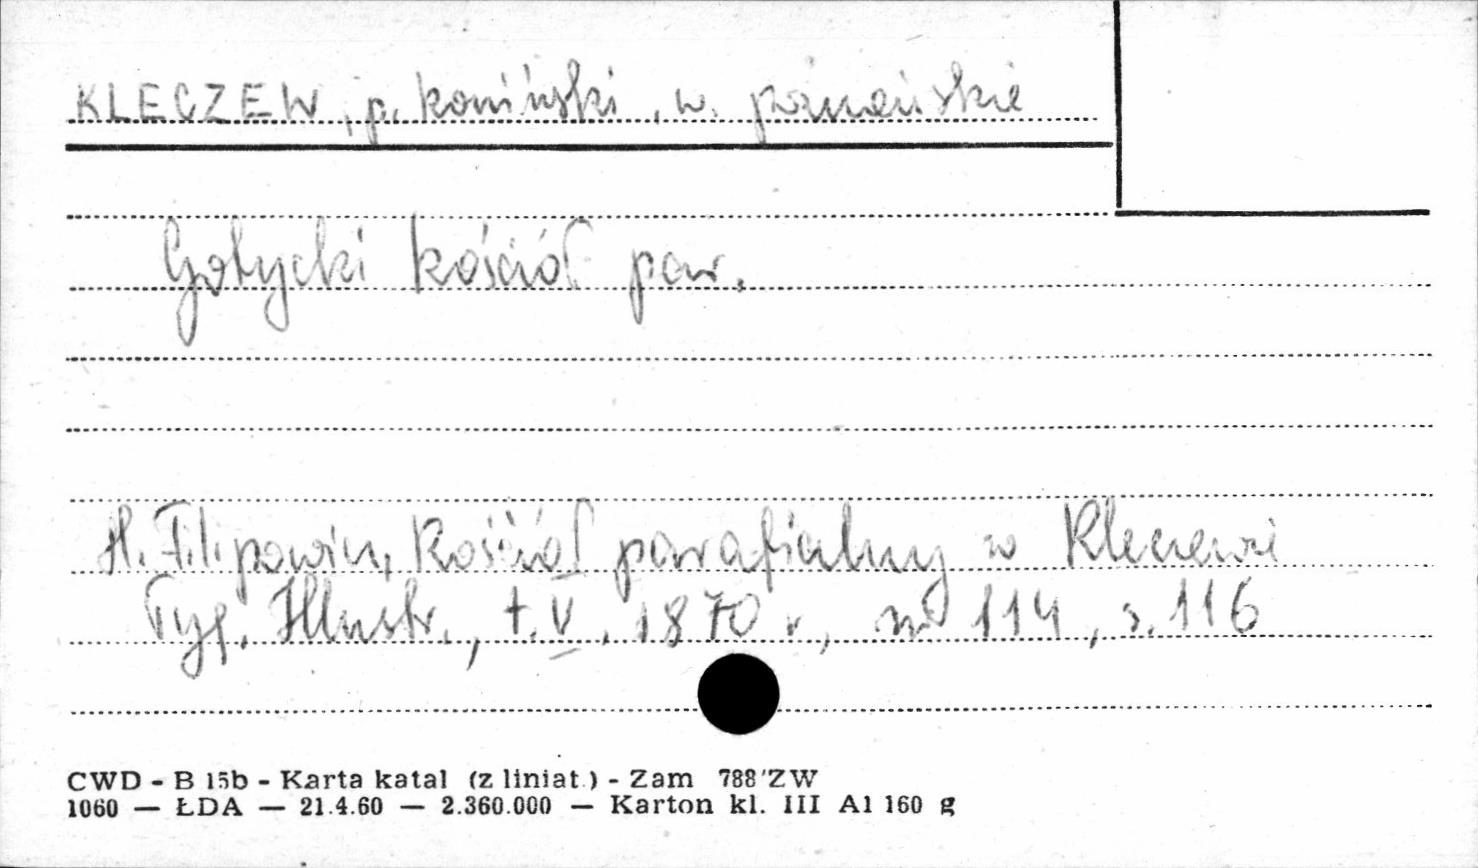 KLECZEW, p. koniński, w. poznańskie
Gotycki kościół par.
H. Filipowicz, Kościół parafialny w Kleczewie
Tyg. Illustr., t. V, 1870 r., nr 114, s. 116
CWD - B 15b - Karta katal (z liniat.) - Zam 788/ZW
1060 — ŁDA — 21.4.60 — 2.360.000 — Karton kl. III A1 160 g